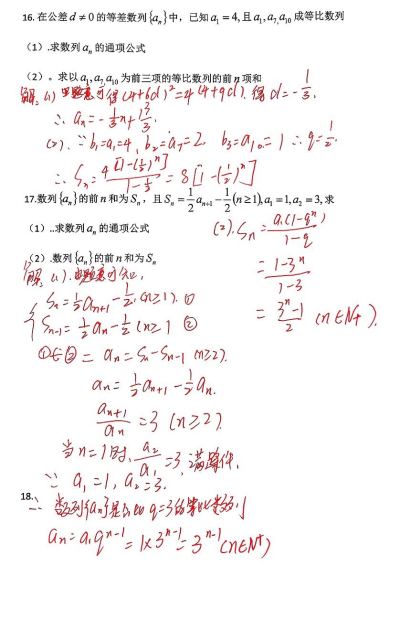 16. 在公差 d ≠ 0 的等差数列 {aₙ} 中，已知 a₁ = 4, 且 a₁, a₇, a₁₀ 成等比数列
（1）.求数列 aₙ 的通项公式
（2）。求以 a₁, a₇, a₁₀ 为前三项的等比数列的前 n 项和
解: (1) 由题意可得 (4+6d)²=4(4+9d). 得 d=-1/3.
∴ aₙ=-1/3 n+13/3.
(2). ∵ b₁=a₁=4, b₂=a₇=2 b₃=a₁₀=1 ∴ q=1/2.
∴ Sₙ = 4[1-(1/2)ⁿ]/(1-1/2) = 8[1-(1/2)ⁿ]
17.数列 {aₙ} 的前 n 和为 Sₙ，且 Sₙ = 1/2 aₙ₊₁ - 1/2 (n ≥ 1), a₁ = 1, a₂ = 3, 求
（1）..求数列 aₙ 的通项公式
（2）.数列 {aₙ} 的前 n 和为 Sₙ
解: (1). 由题意可知,
{ Sₙ=1/2 aₙ₊₁-1/2. (n≥1). ①
Sₙ₋₁=1/2 aₙ-1/2 (n≥1 ②
aₙ=Sₙ-Sₙ₋₁ (n≥2).
aₙ=1/2 aₙ₊₁-1/2 aₙ.
aₙ₊₁/aₙ=3 (n≥2)
当 n=1时, a₂/a₁=3, 满
∵ a₁=1, a₂=3.
18.
∴ 数列{aₙ}是 q=3的等比数列
aₙ=a₁qⁿ⁻¹=1×3ⁿ⁻¹=3ⁿ⁻¹(n∈N⁺)
(2). Sₙ=a₁(1-qⁿ)/(1-q)
=(1-3ⁿ)/(1-3)
=(3ⁿ-1)/2 (n∈N₊).